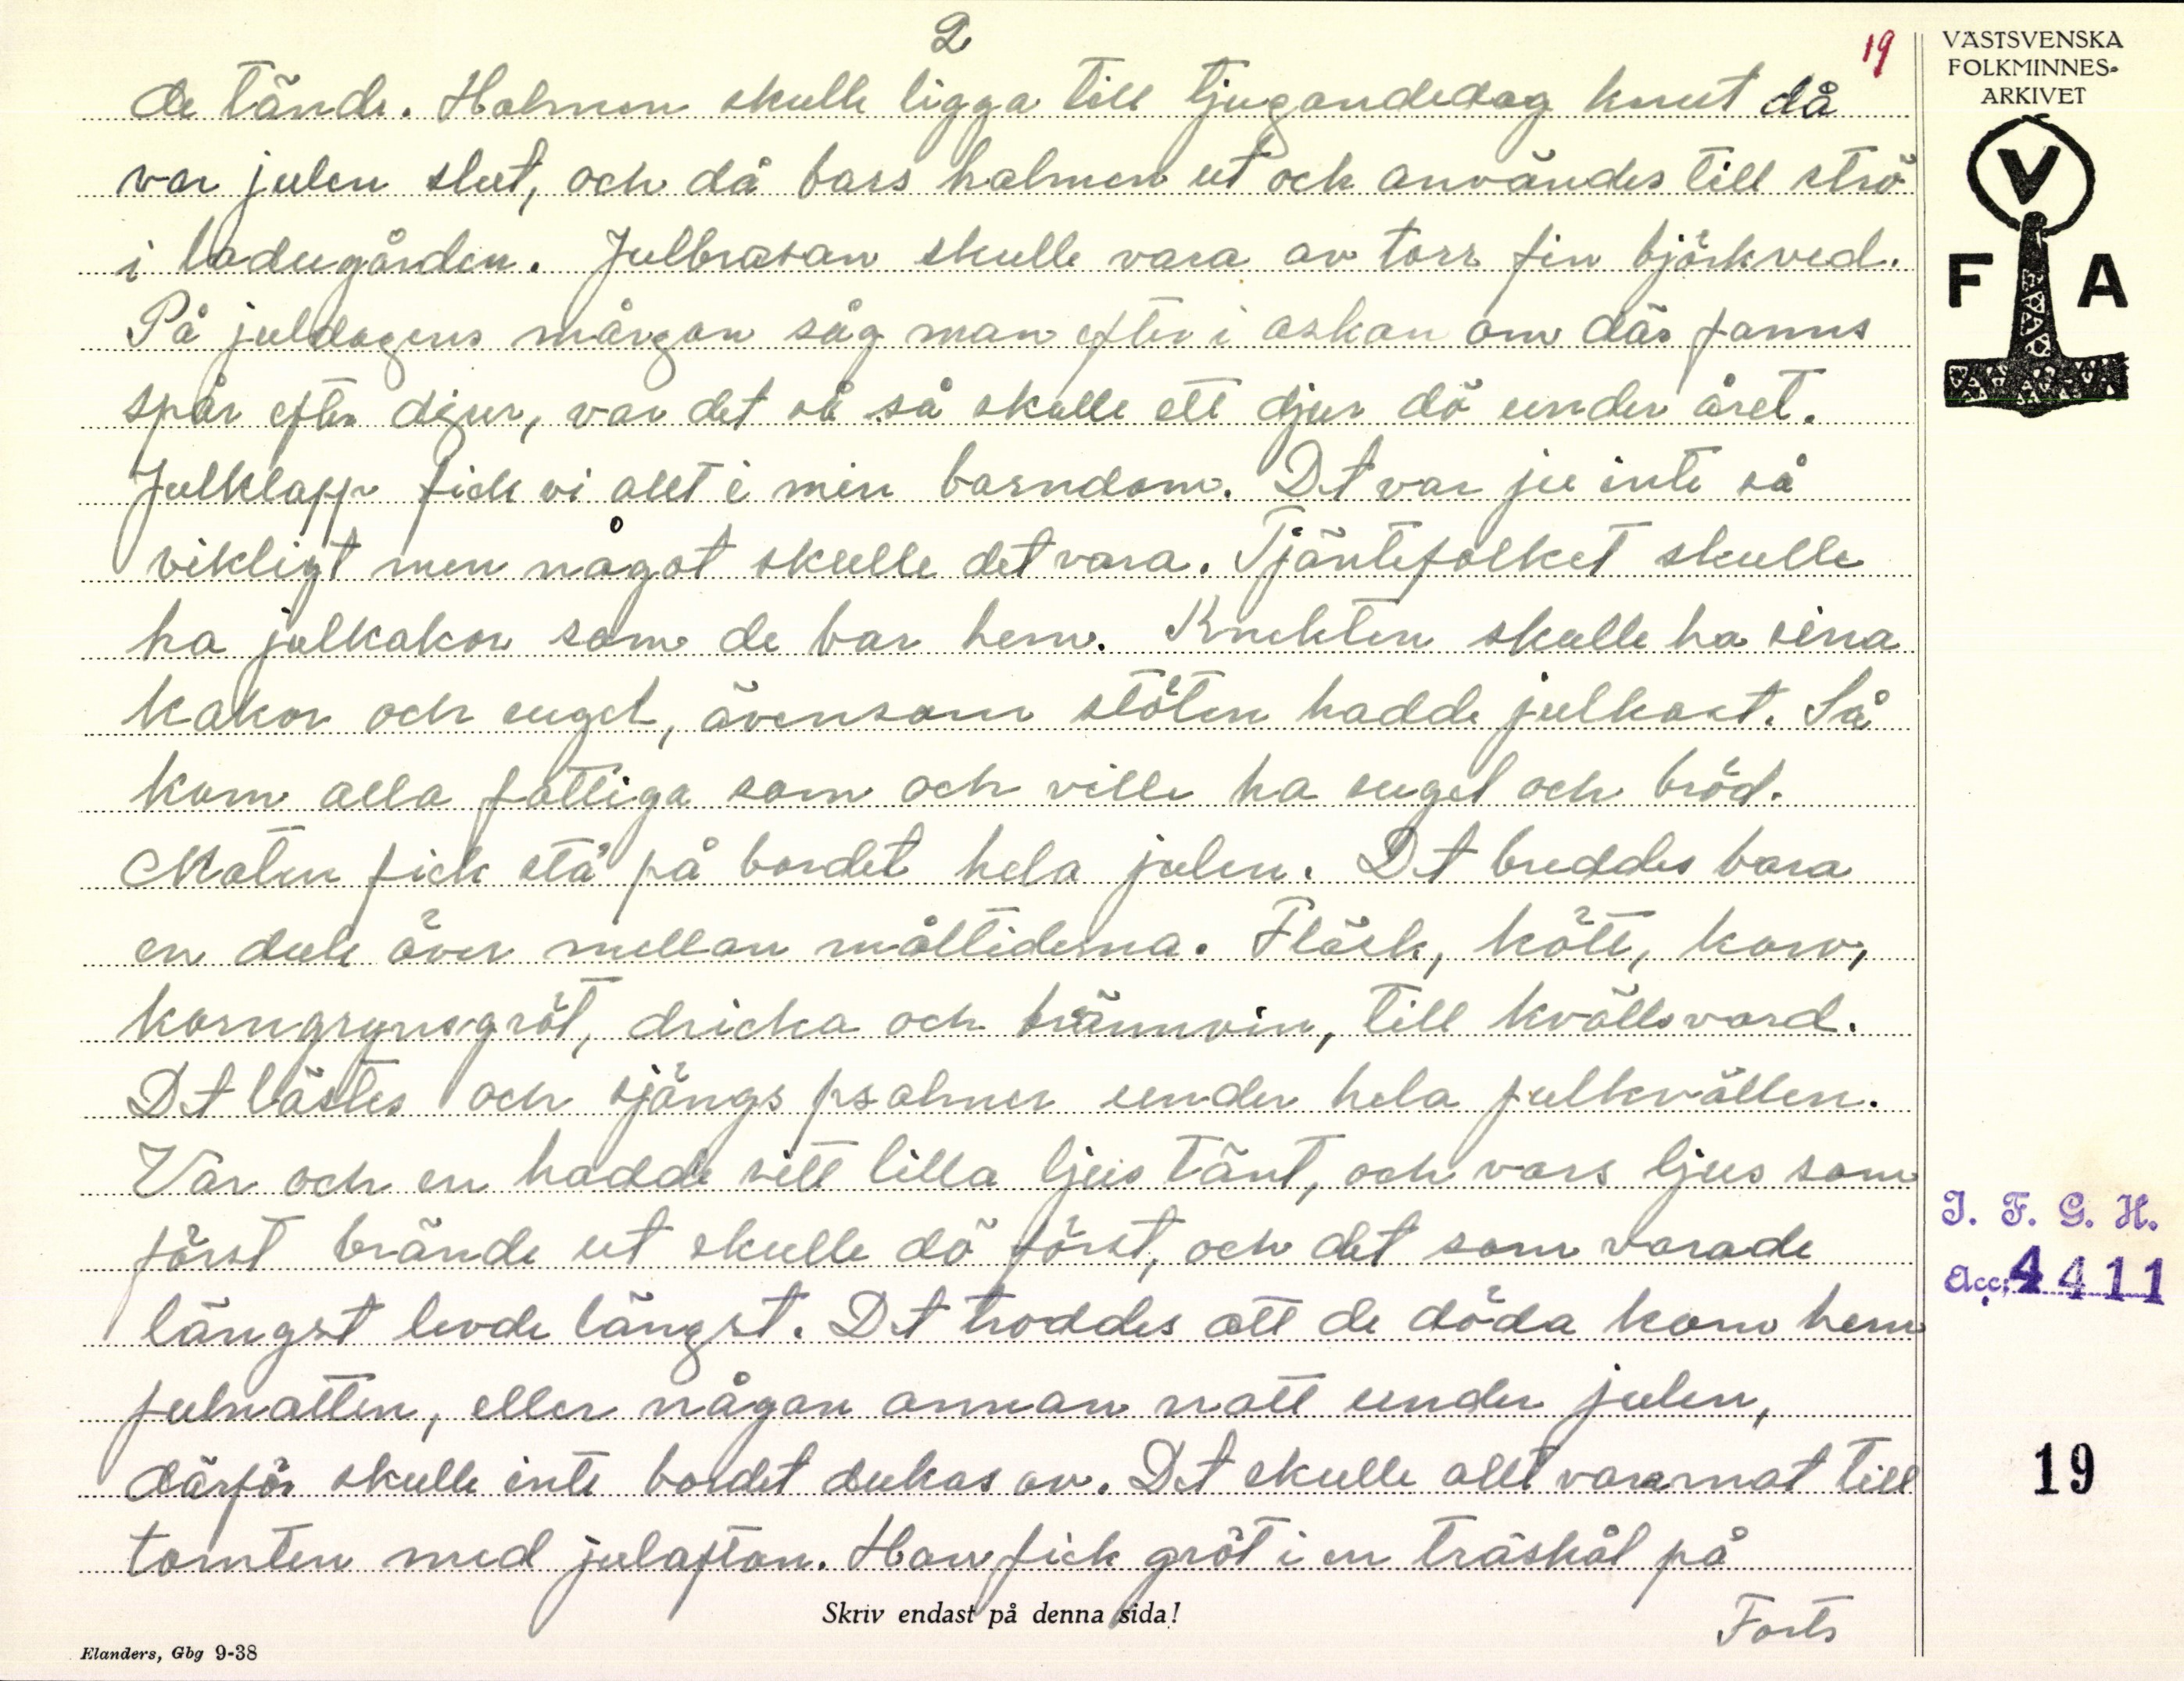 2
19
de tände. Halmen skulle ligga till tjugondedag knut då
var julen slut, och då bars halmen ut och användes till strö
i ladugården. Julbrasan skulle vara av torr fin björkved.
På juldagens mårgon såg man efter i askan om där fanns
spår efter djur, var det så så skulle ett djur dö under året.
Julklapp fick vi allt i min barndom. Det var ju inte så
vikligt men något skulle det vara. Tjäntefolket skulle
ha julkakor som de bar hem. Knekten skulle ha sina
kakor och sugel, ävensom stöten hadde julkost. Så
kom alla fattiga som och ville ha sugel och bröd.
Maten fick stå på bordet hela julen. Det breddes bara
en duk över mellan måltiderna. Fläsk, kött, korv,
korngrynsgröt, dricka och brännvin, till kvällsvard.
Det lästes och sjöngs psalmer under hela julkvällen.
Var och en hadde sitt lilla ljus tänt, och vars ljus som
först brände ut skulle dö först, och det som varade
längst levde längst. Det troddes att de döda kom hem
julnatten, eller någon annan natt under julen,
därför skulle inte bordet dukas av. Det skulle allt vara mat till
tomten med julafton. Han fick gröt i en träskål på
Forts
Skriv endast på denna sida!
Elanders, Gbg 9-38
VÄSTSVENSKA
FOLKMINNES-
ARKIVET
V
F A
I. F. G. H.
Acc. 4411
19